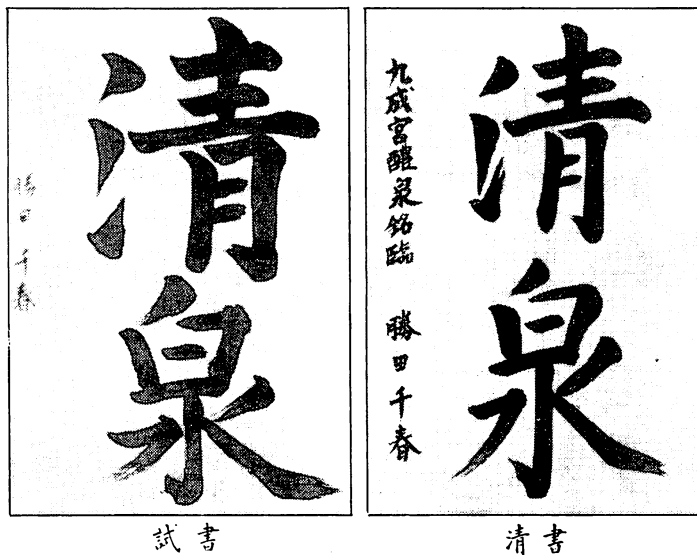 清泉
勝田千春
試書
清泉
九成宮醴泉銘臨 勝田千春
清書